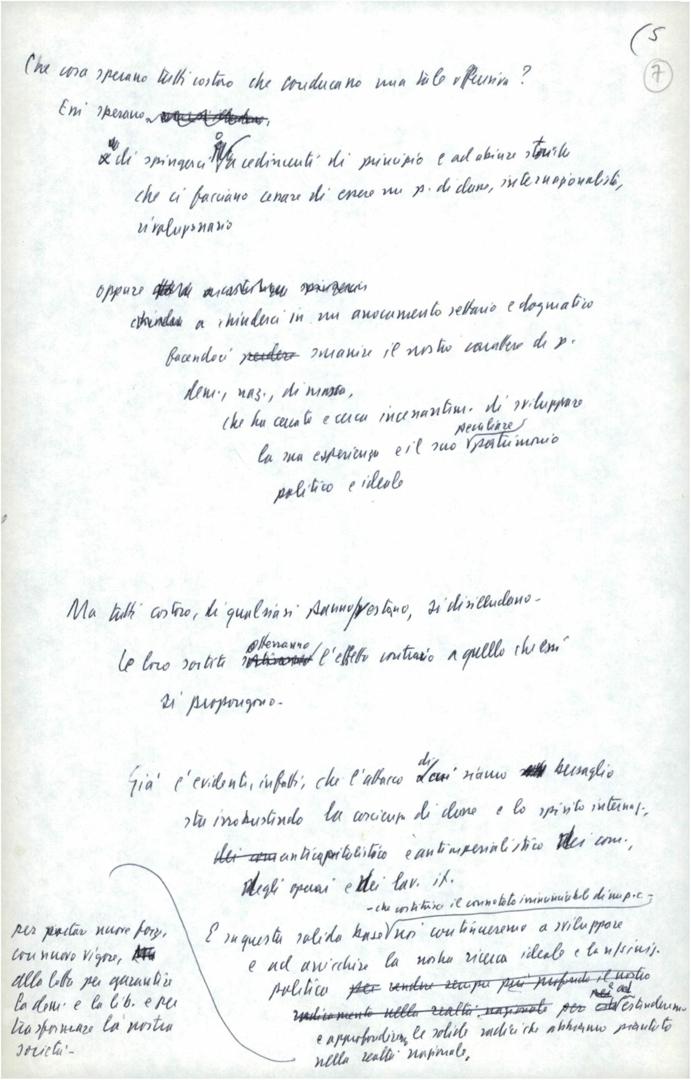 (5
7
Che cosa sperano tutti costoro che conducano una tale offensiva?
Essi sperano
di spingerci o a cedimenti di principio e ad abiure storiche
che ci facciano cessare di essere un p. di classe, internazionalista,
rivoluzionario
oppure
a chiuderci in un arroccamento settario e dogmatico
facendoci perdere smarrire il nostro carattere di p.
dem., naz., di massa,
che ha cercato e cerca incessantem. di sviluppare
peculiare
la sua esperienza e il suo patrimonio
politico e ideale
Ma tutti costoro, di qualsiasi panno vestano, si disilludono-
otterranno
Le loro sortite l'effetto contrario a quello che essi
si propongono-
Già è evidente, infatti, che l'attacco di cui siamo bersaglio
sta irrobustendo la coscienza di classe e lo spirito internaz.,
anticapitalistico e antimperialistico dei com.,
degli operai e dei lav. it.
- che costituisce il connotato irrinunciabile di un p.c.-
E su questa solida base noi continueremo a sviluppare
e ad arricchire la nostra ricerca ideale e la ns/ iniz.
politica per rendere sempre più profondo il nostro
radicamento nella realtà nazionale per estendere
e approfondire le solide radici che abbiamo piantato
nella realtà nazionale,
per portar nuove forze,
con nuovo vigore,
alla lotta per garantire
la dem. e la lib. e per
trasformare la nostra
società.-